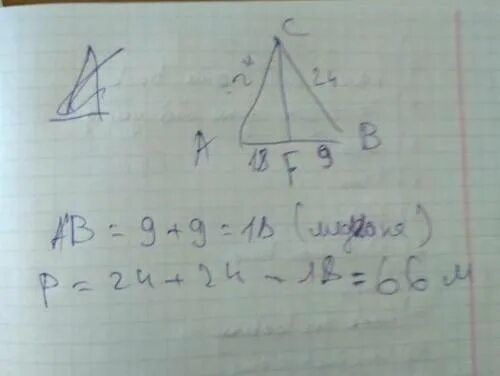 C
24
A
B
18 F 9
AB = 9 + 9 = 18 (медиана)
P = 24 + 24 - 18 = 66 м